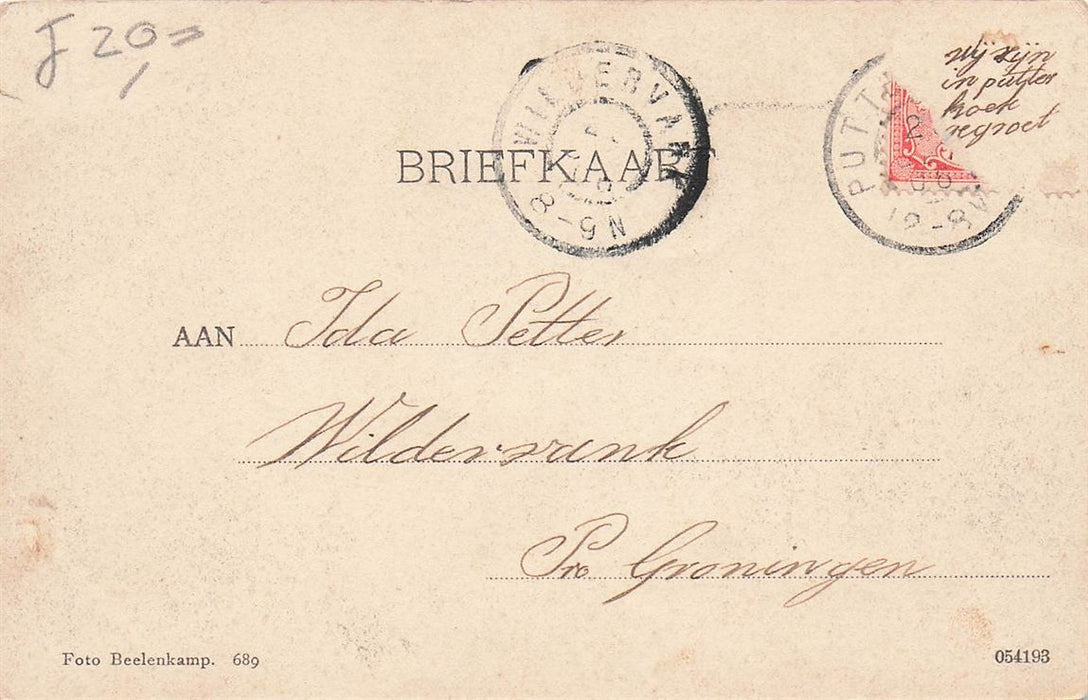 ƒ 20=
wij zijn
in putter
hoek
gegroet
WILDERVANK
8-9N
PUTT
2
12-8V
BRIEFKAART
AAN Ida Petter
Wildervank
Pro Groningen
Foto Beelenkamp. 689
054193